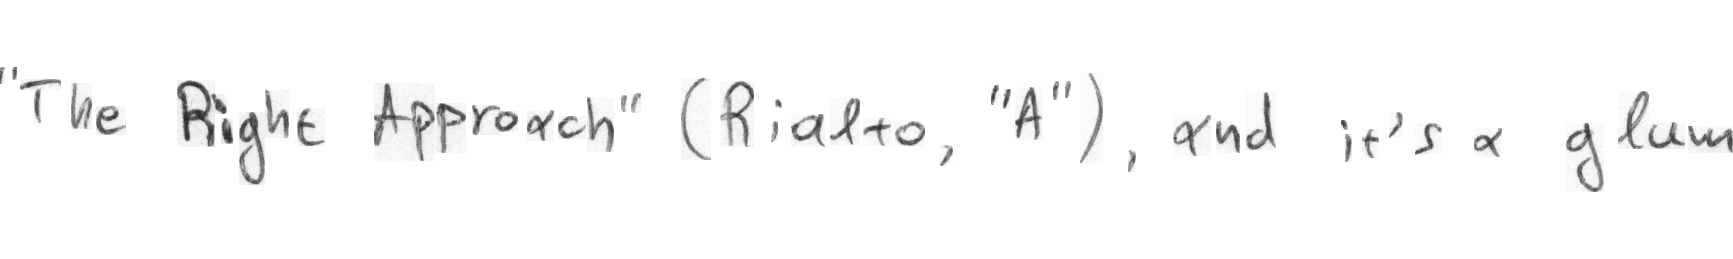 "The Right Approach" (Rialto, "A"), and it's a glum